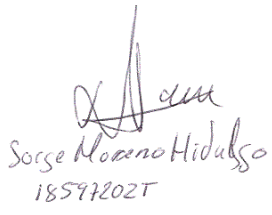 Jorge Moreno Hidalgo
18597202T